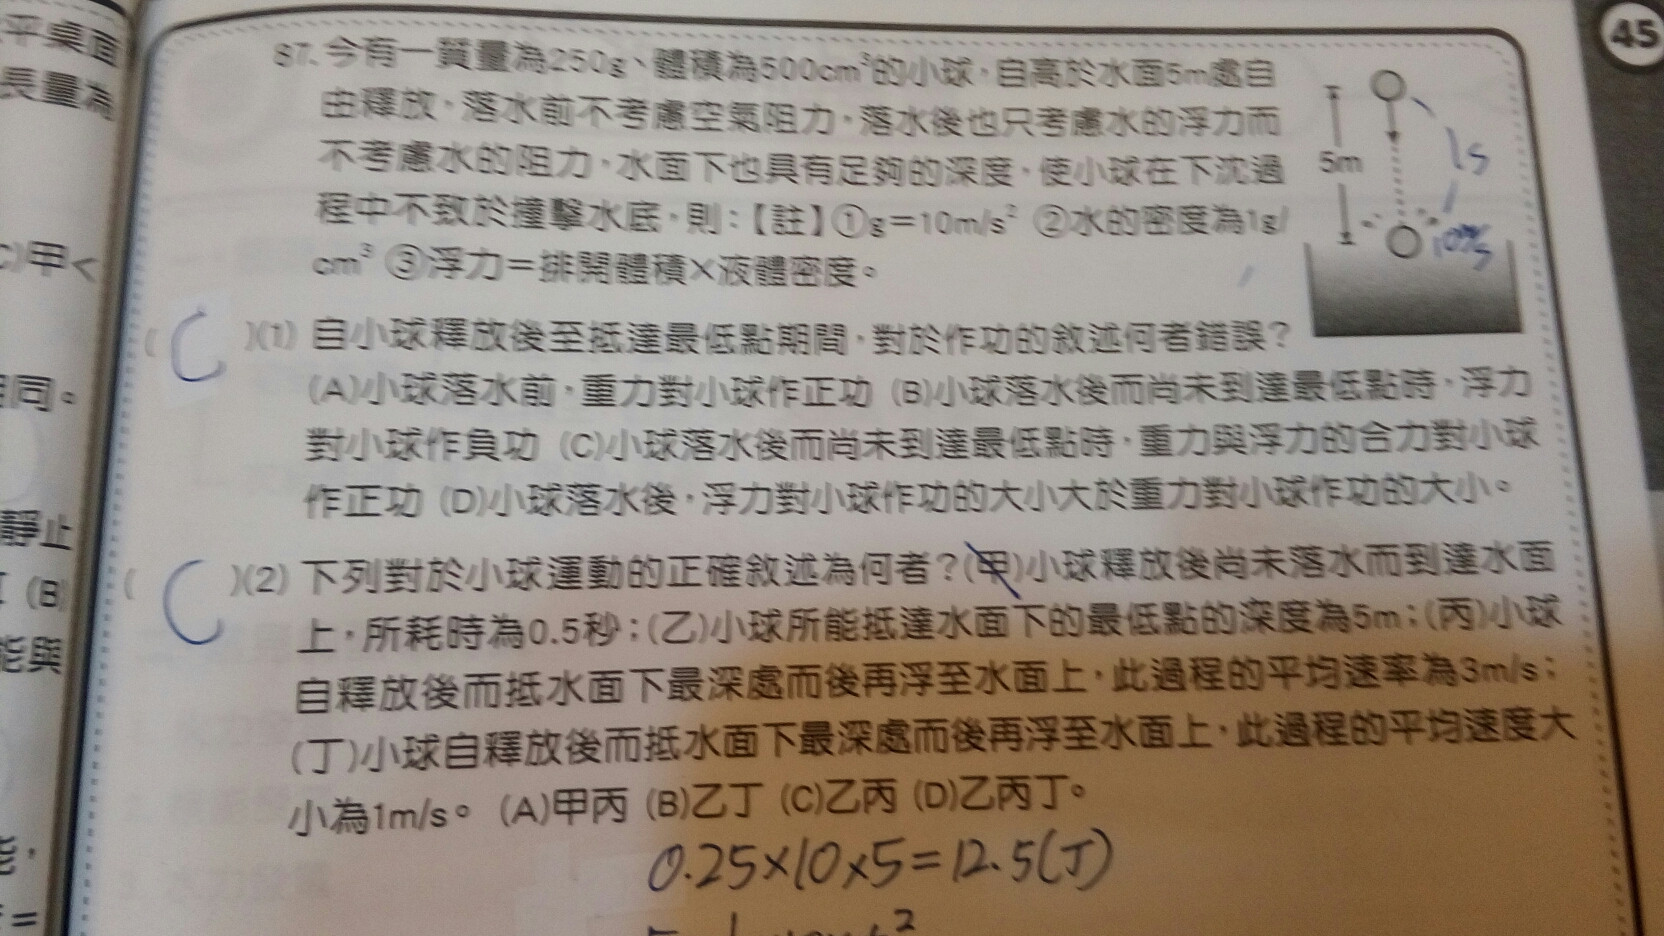 45
平桌面
長量為
87.今有一質量為250g、體積為500cm³的小球,自高於水面5m處自
由釋放,落水前不考慮空氣阻力,落水後也只考慮水的浮力而
不考慮水的阻力,水面下也具有足夠的深度,使小球在下沈過
程中不致於撞擊水底,則:【註】①g=10m/s² ②水的密度為1g/
cm³ ③浮力=排開體積×液體密度。
5m
1s
10m/s
C)甲<
(C)(1) 自小球釋放後至抵達最低點期間,對於作功的敘述何者錯誤?
(A)小球落水前,重力對小球作正功 (B)小球落水後而尚未到達最低點時,浮力
對小球作負功 (C)小球落水後而尚未到達最低點時,重力與浮力的合力對小球
作正功 (D)小球落水後,浮力對小球作功的大小大於重力對小球作功的大小。
同。
靜止
(B)
能與
(C)(2) 下列對於小球運動的正確敘述為何者?(甲)小球釋放後尚未落水而到達水面
上,所耗時為0.5秒;(乙)小球所能抵達水面下的最低點的深度為5m;(丙)小球
自釋放後而抵水面下最深處而後再浮至水面上,此過程的平均速率為3m/s;
(丁)小球自釋放後而抵水面下最深處而後再浮至水面上,此過程的平均速度大
小為1m/s。 (A)甲丙 (B)乙丁 (C)乙丙 (D)乙丙丁。
0.25×10×5=12.5(J)